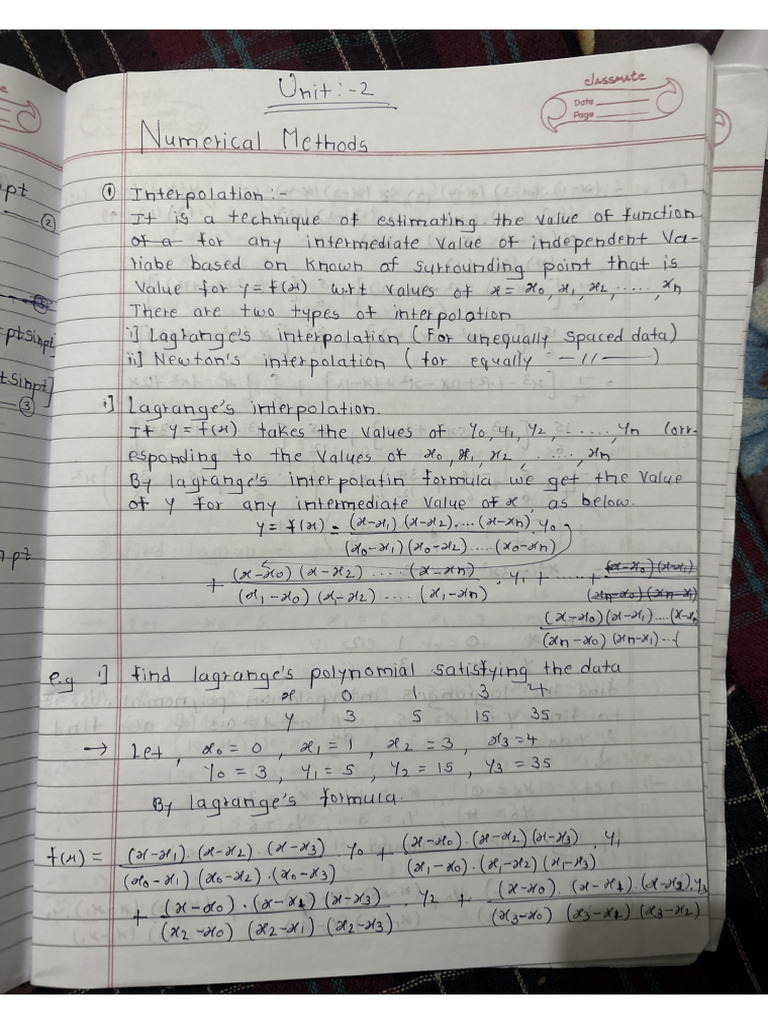 Unit :- 2
classmate
Date
Page
Numerical Methods
① Interpolation :-
It is a technique of estimating the value of function
of a for any intermediate value of independent Va-
riabe based on known of surrounding point that is
value for y = f(x) w.r.t values of x = x0, x1, x2, ....., xn
There are two types of interpolation
i] Lagrange's interpolation (for unequally spaced data)
ii] Newton's interpolation ( for equally —11—— )
i] Lagrange's interpolation.
If y = f(x) takes the values of y0, y1, y2, ......, yn (orr-
esponding to the values of x0, x1, x2, ....., xn
By lagrange's interpolatin formula we get the value
of y for any intermediate value of x as below.
y = f(x) = (x-x1).(x-x2)....(x-xn) y0
(x0-x1)(x0-x2)....(x0-xn)
+ (x-x0)(x-x2).....(x-xn) . y1 + ..... + (x-x0)(x-x1)
(x1-x0)(x1-x2)....(x1-xn) (xn-x0)(xn-x1)
(x-x0)(x-x1)....(x-xn
(xn-x0)(xn-x1)...(
e.g i] find lagrange's polynomial satisfying the data
x 0 1 3 4
y 3 5 15 35
→ Let, x0 = 0, x1 = 1, x2 = 3, x3 = 4
y0 = 3, y1 = 5, y2 = 15, y3 = 35
By lagrange's formula.
f(x) = (x-x1).(x-x2).(x-x3) . y0 + (x-x0).(x-x2)(x-x3) . y1
(x0-x1)(x0-x2).(x0-x3) (x1-x0).(x1-x2)(x1-x3)
+ (x-x0).(x-x1)(x-x3) . y2 + (x-x0).(x-x1).(x-x2).y3
(x2-x0)(x2-x1)(x2-x3) (x3-x0)(x3-x1)(x3-x2)
pt
②
ptsinpt
tsinpt]
③
pt